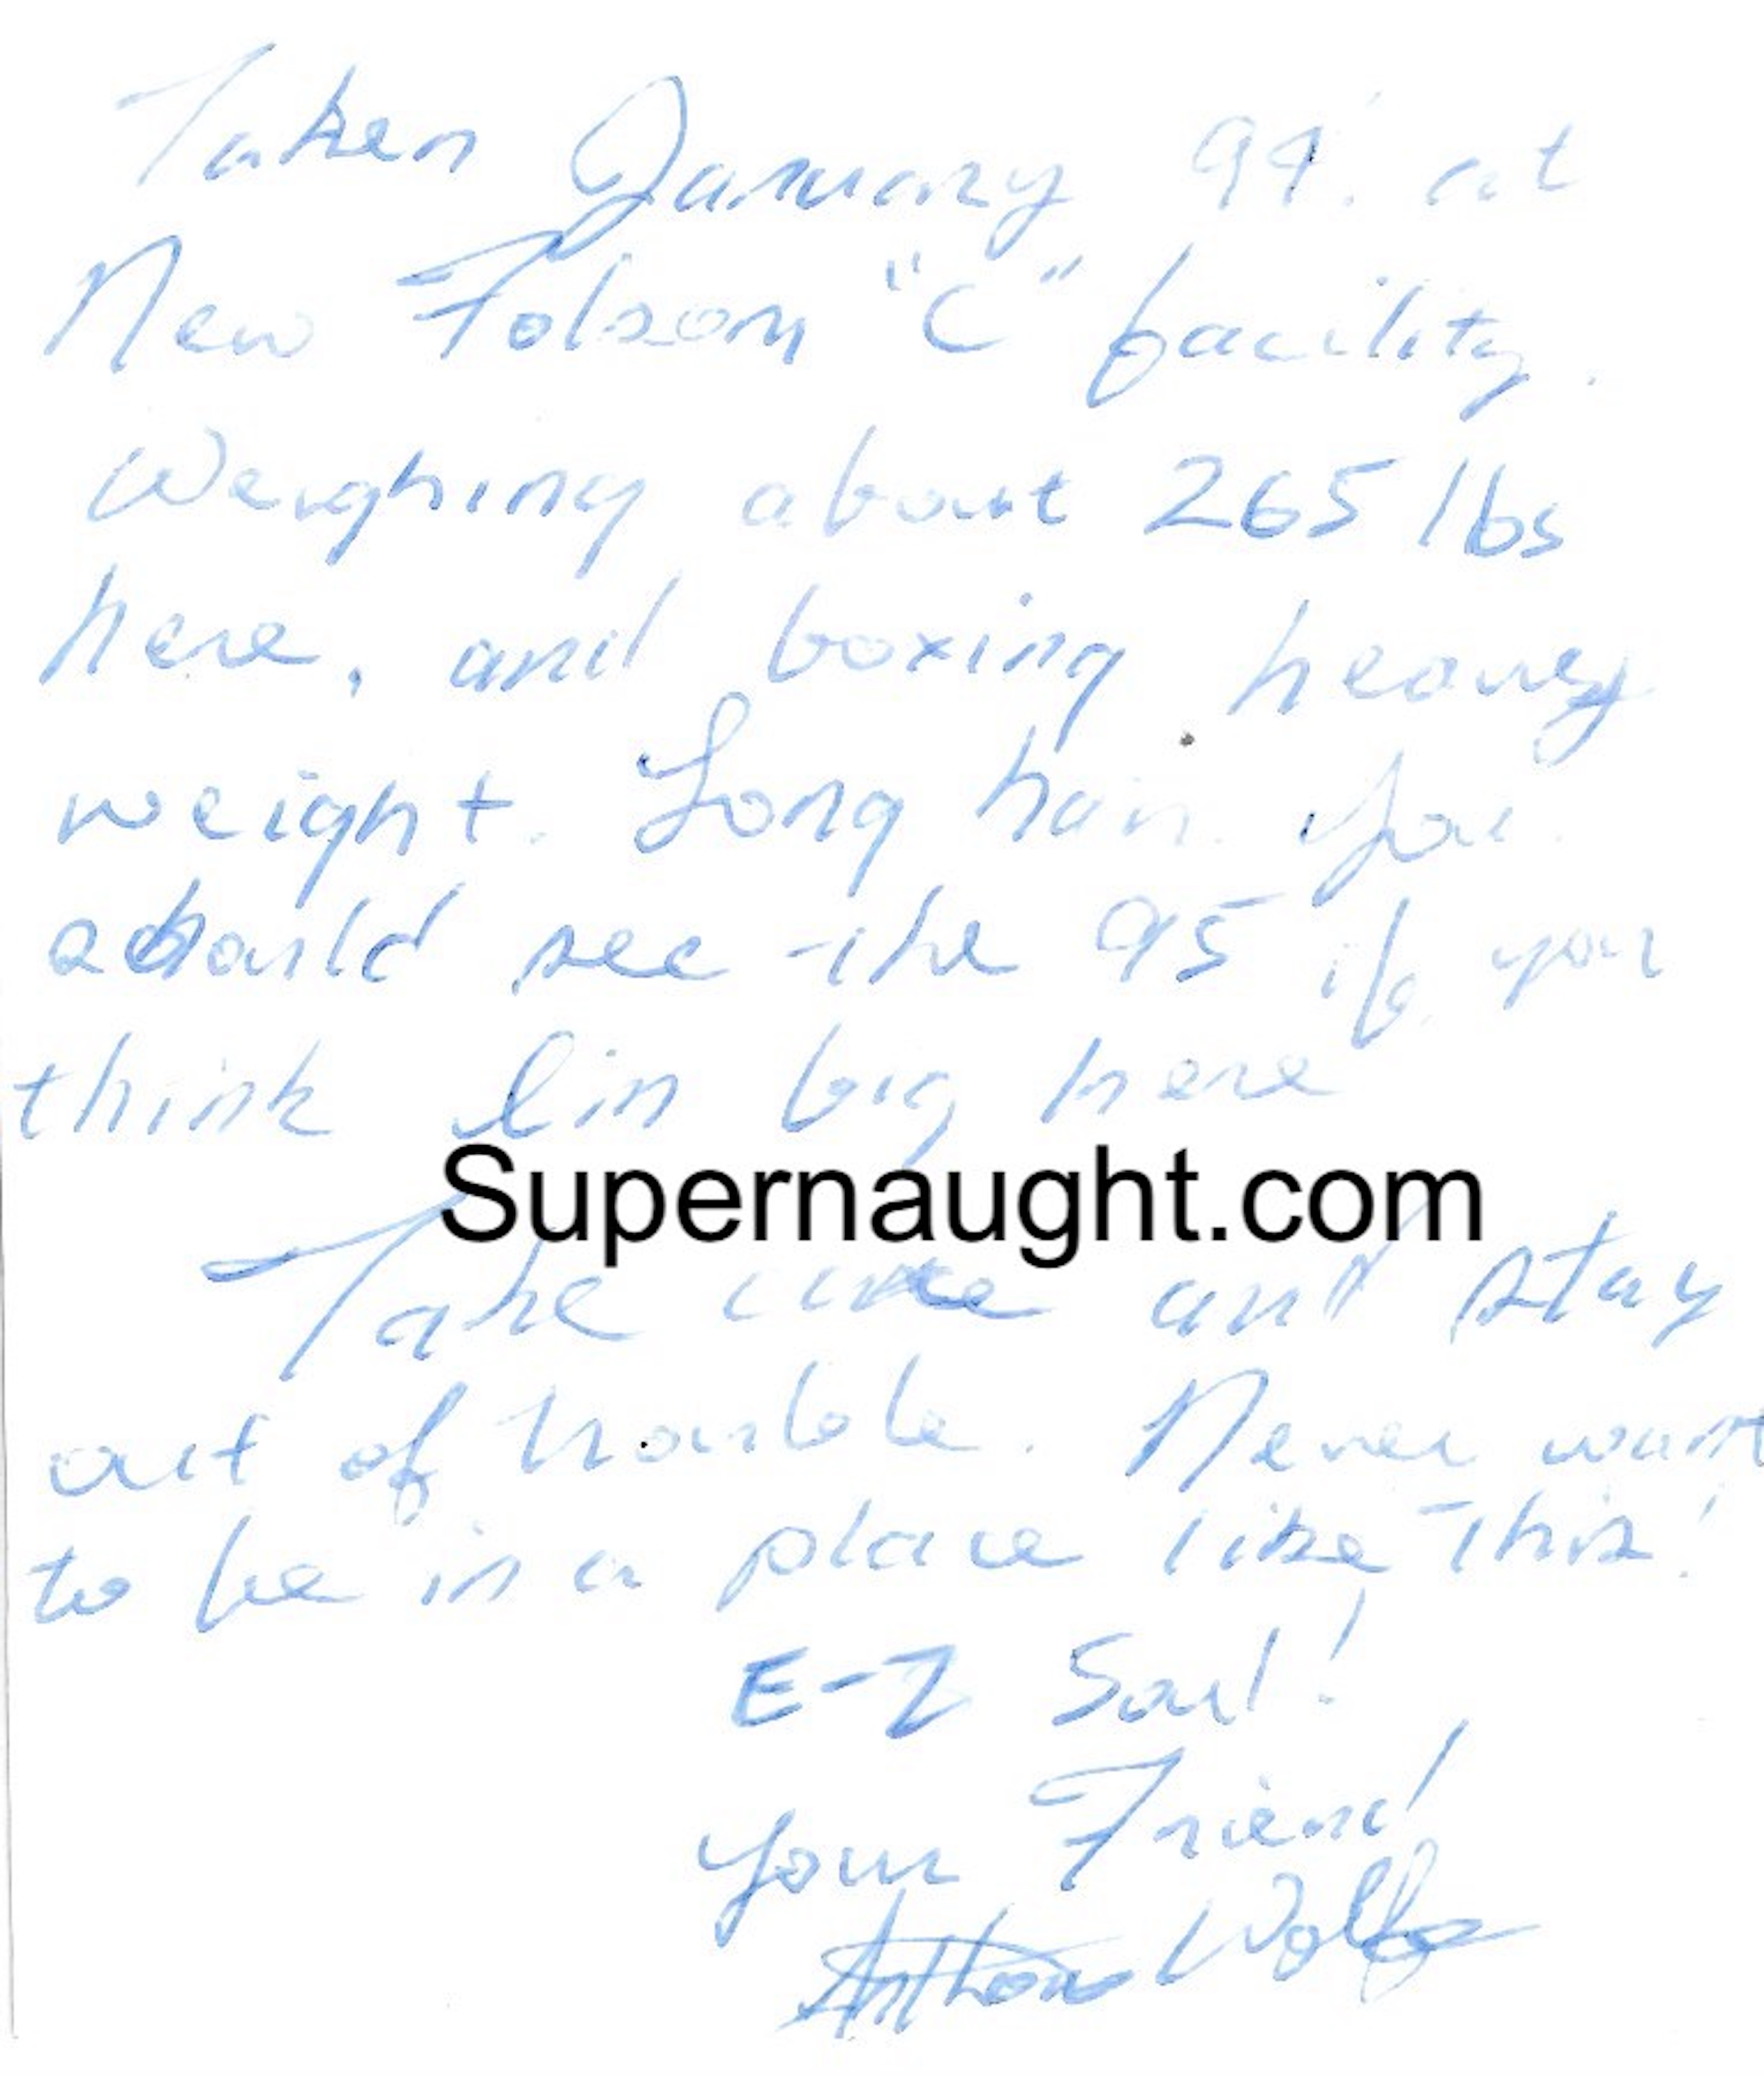 Taken January 94. at
New Folsom "C" facility.
Weighing about 265 lbs
here, and boxing heavy
weight. Long hair. You
should see the 95 if you
think I'm big here
Supernaught.com
Take care and stay
out of trouble. Never want
to be in a place like This!
E-Z Soul!
Your Friend
Anthony Wolfe